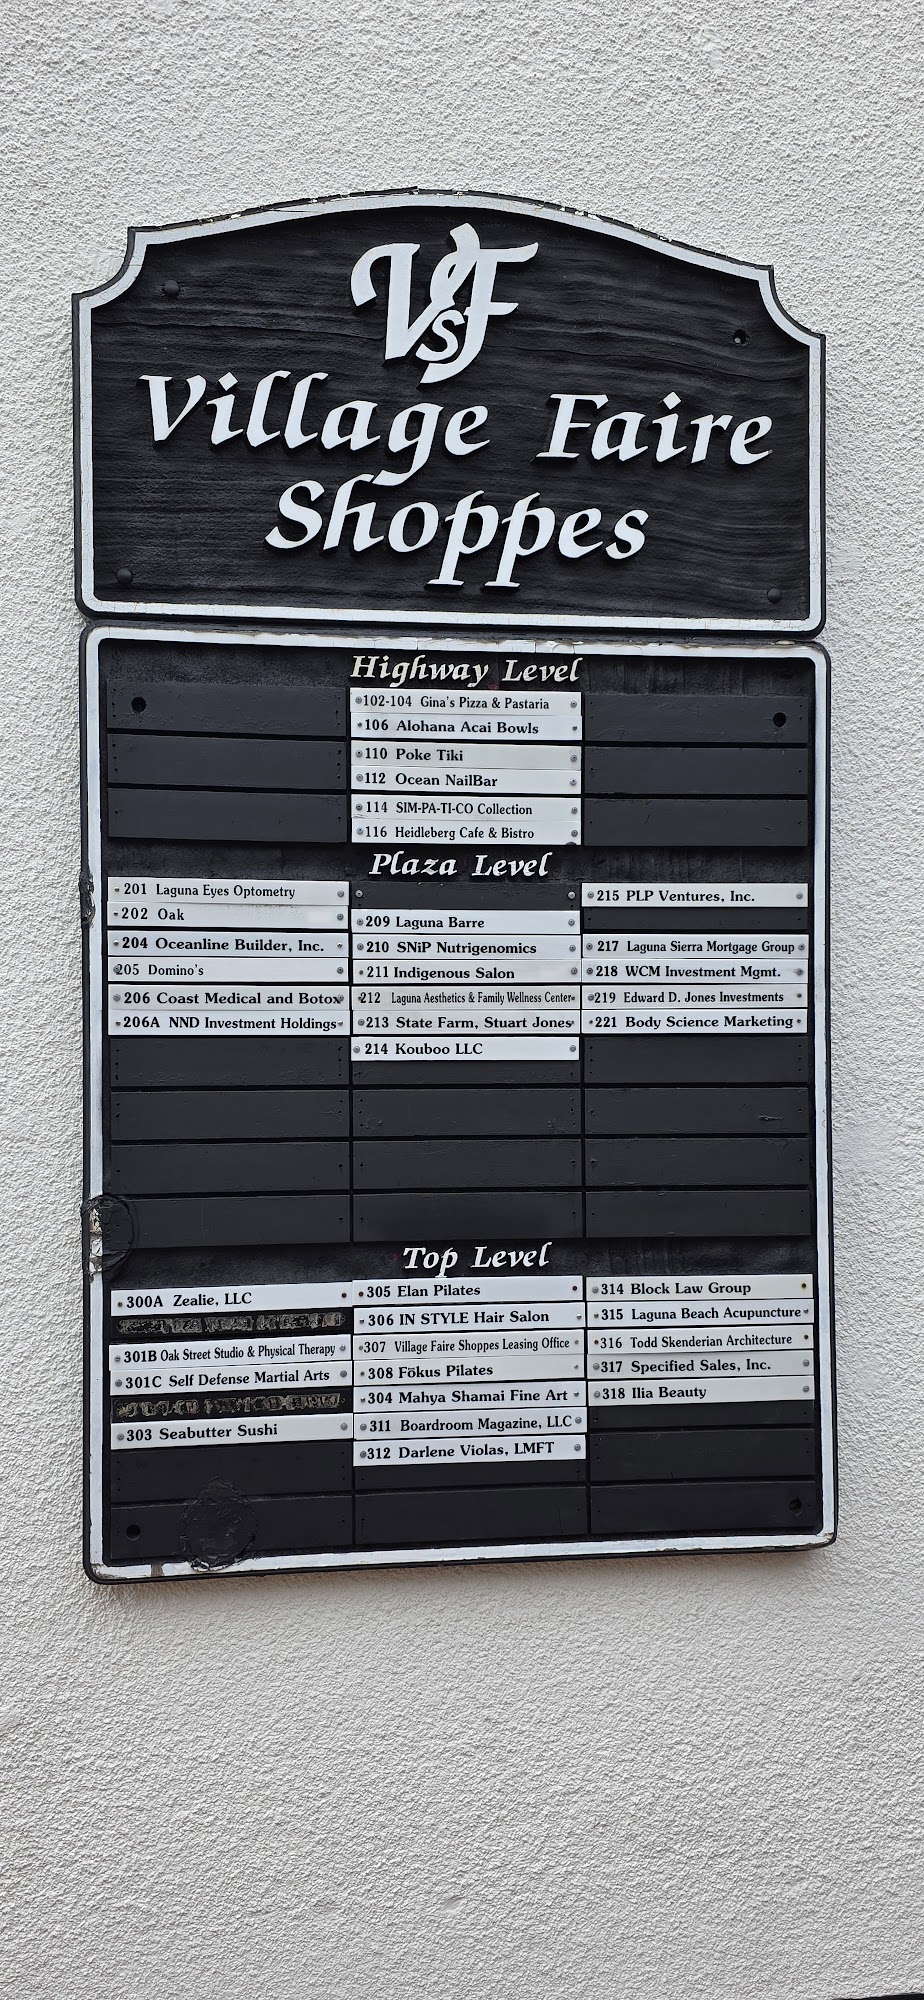 VSF
Village Faire
Shoppes
Highway Level
102-104 Gina's Pizza & Pastaria
106 Alohana Acai Bowls
110 Poke Tiki
112 Ocean NailBar
114 SIM-PA-TI-CO Collection
116 Heidleberg Cafe & Bistro
Plaza Level
201 Laguna Eyes Optometry
202 Oak
204 Oceanline Builder, Inc.
205 Domino's
206 Coast Medical and Botox
206A NND Investment Holdings
209 Laguna Barre
210 SNiP Nutrigenomics
211 Indigenous Salon
212 Laguna Aesthetics & Family Wellness Center
213 State Farm, Stuart Jones
214 Kouboo LLC
215 PLP Ventures, Inc.
217 Laguna Sierra Mortgage Group
218 WCM Investment Mgmt.
219 Edward D. Jones Investments
221 Body Science Marketing
Top Level
300A Zealie, LLC
301B Oak Street Studio & Physical Therapy
301C Self Defense Martial Arts
303 Seabutter Sushi
305 Elan Pilates
306 IN STYLE Hair Salon
307 Village Faire Shoppes Leasing Office
308 Fōkus Pilates
304 Mahya Shamai Fine Art
311 Boardroom Magazine, LLC
312 Darlene Violas, LMFT
314 Block Law Group
315 Laguna Beach Acupuncture
316 Todd Skenderian Architecture
317 Specified Sales, Inc.
318 Ilia Beauty